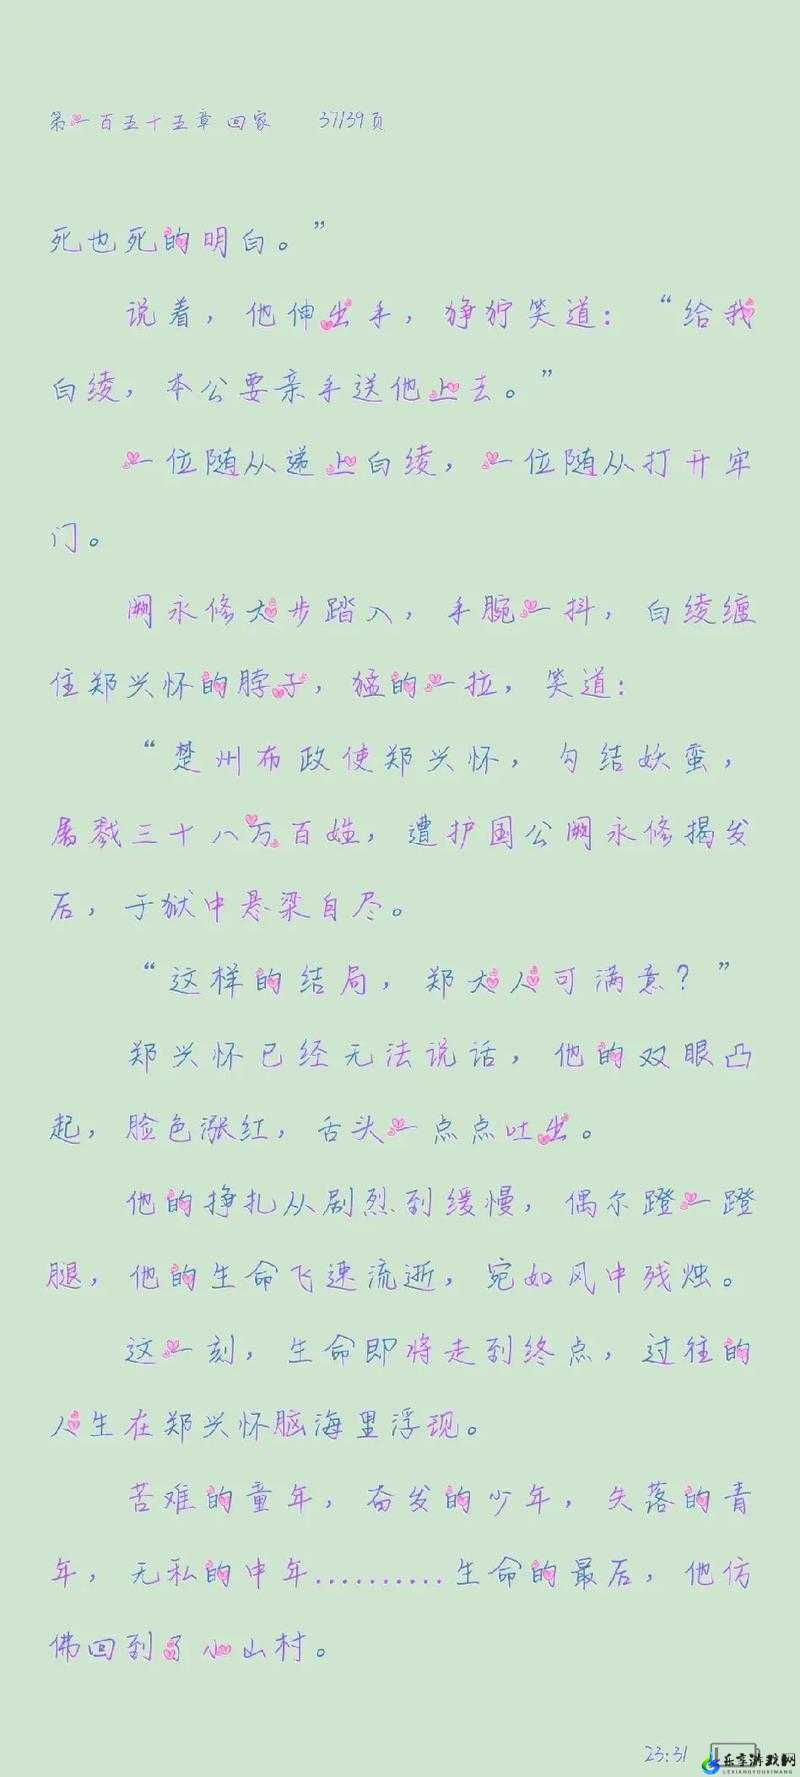 第一百五十五章 回家 37/39页
死也死的明白。”
说着，他伸出手，狰狞笑道：“给我
白绫，本公要亲手送他上去。”
一位随从递上白绫，一位随从打开牢
门。
阙永修大步踏入，手腕一抖，白绫缠
住郑兴怀的脖子，猛的一拉，笑道：
“楚州布政使郑兴怀，勾结妖蛮，
屠戮三十八万百姓，遭护国公阙永修揭发
后，于狱中悬梁自尽。
“这样的结局，郑大人可满意？”
郑兴怀已经无法说话，他的双眼凸
起，脸色涨红，舌头一点点吐出。
他的挣扎从剧烈到缓慢，偶尔蹬一蹬
腿，他的生命飞速流逝，宛如风中残烛。
这一刻，生命即将走到终点，过往的
人生在郑兴怀脑海里浮现。
苦难的童年，奋发的少年，失落的青
年，无私的中年..........生命的最后，他仿
佛回到了小山村。
23:31
乐享游戏网
LEXIANGYOUXIWANG